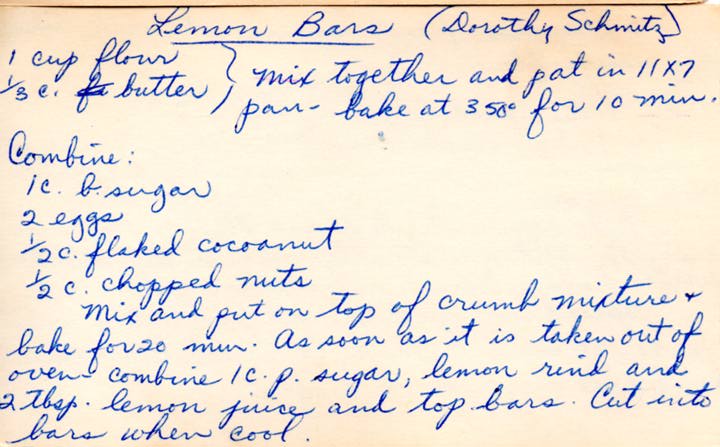 Lemon Bars (Dorothy Schmitz)
1 cup flour
1/3 c. butter } Mix together and pat in 11X7
pan - bake at 350° for 10 min.
Combine:
1 c. b. sugar
2 eggs
1/2 c. flaked cocoanut
1/2 c. chopped nuts
Mix and put on top of crumb mixture +
bake for 20 min. As soon as it is taken out of
oven - combine 1 c. p. sugar, lemon rind and
2 tbsp. lemon juice and top bars. Cut into
bars when cool.